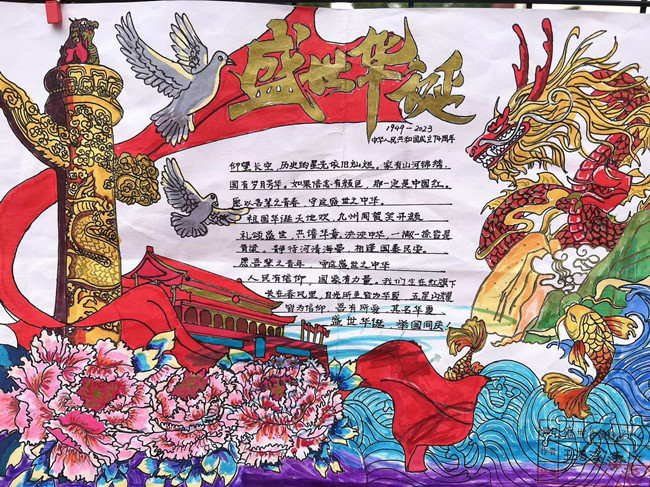 盛世华诞
1949-2023
中华人民共和国成立74周年
仰望长空,历史的星光依旧灿烂。家有山河锦绣,
国有岁月芳华。如果信念有颜色,那一定是中国红。
愿以吾辈之青春,守这盛世之中华。
祖国华诞天地欢,九州同贺笑开颜
礼颂盛世,共谱华章。泱泱中华,一撇一捺皆是
脊梁。静待河清海晏,相逢国泰民安。
愿吾辈之青年,守这盛世之中华
人民有信仰,国家有力量。我们生在红旗下
长在春风里,目光所至皆为华夏,五星闪耀
皆为信仰,吾有所爱,其名华夏
盛世华诞 举国同庆!